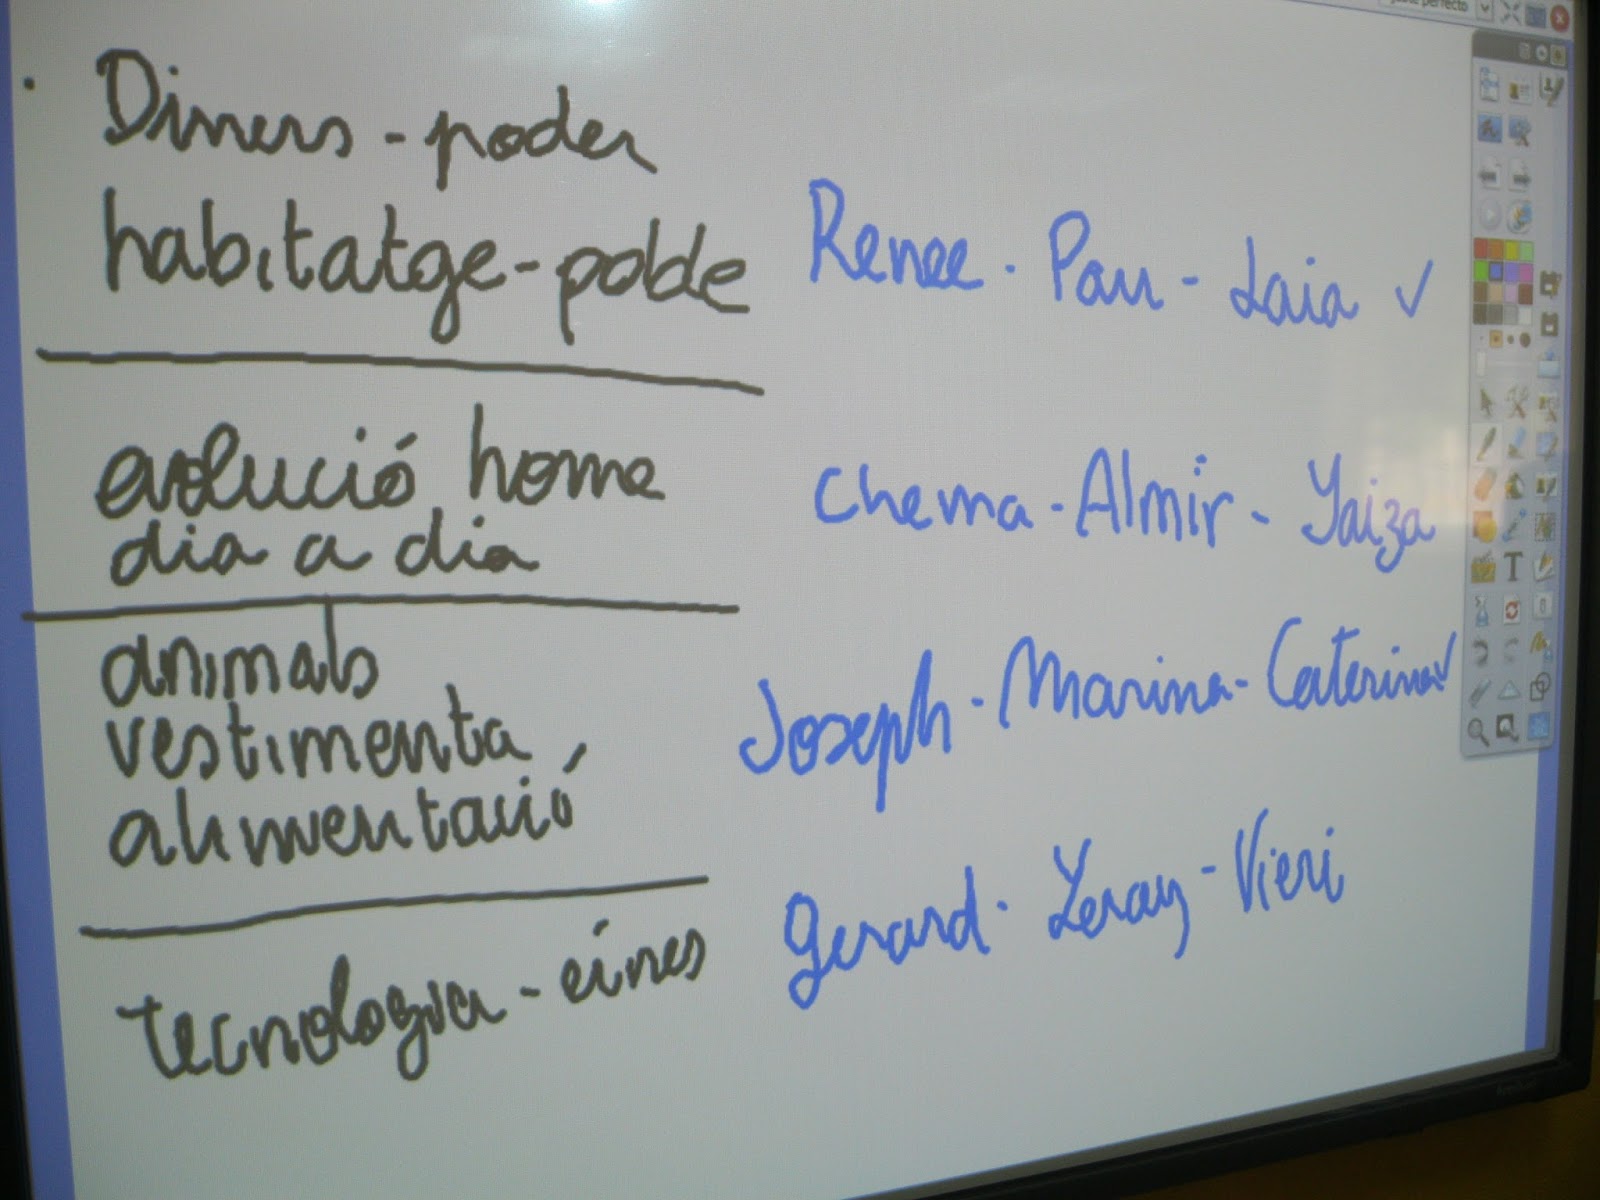 perfecto
Diners - poder
habitatge - poble
Renee - Pau - Laia ✓
evolució home
dia a dia
Chema - Almir - Yaiza
animals
vestimenta
alimentació
Joseph - Marina - Caterina ✓
tecnologia - eines
Gerard - Yeray - Vieri